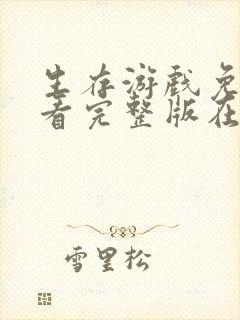 生存游戏免
看完整版在
雪里松